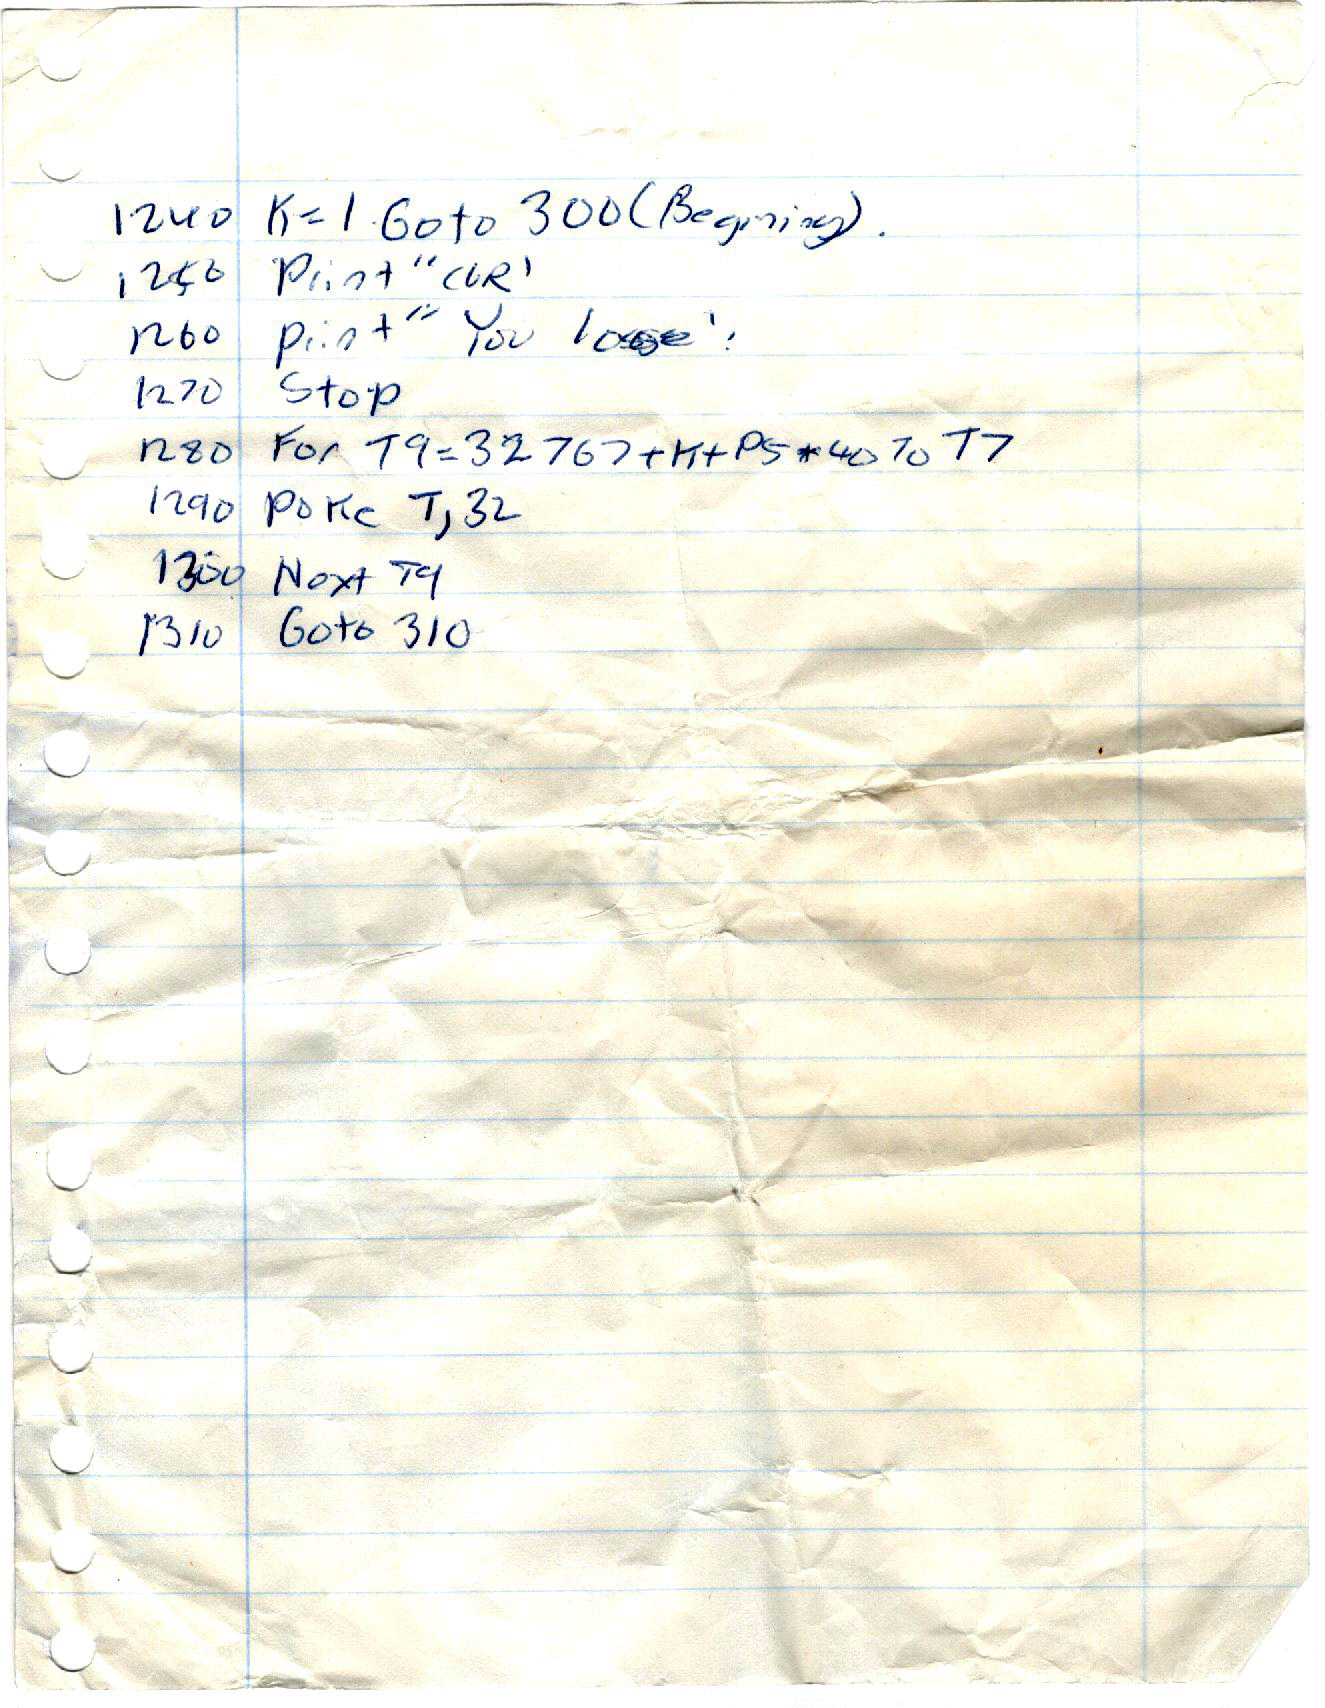 1240 K=1 Goto 300 (Begining).
1250 Print "CLR'
1260 print "You loose':
1270 Stop
1280 For T9=32767+K+P5*40 To T7
1290 Poke T,32
1300 Next T9
1310 Goto 310